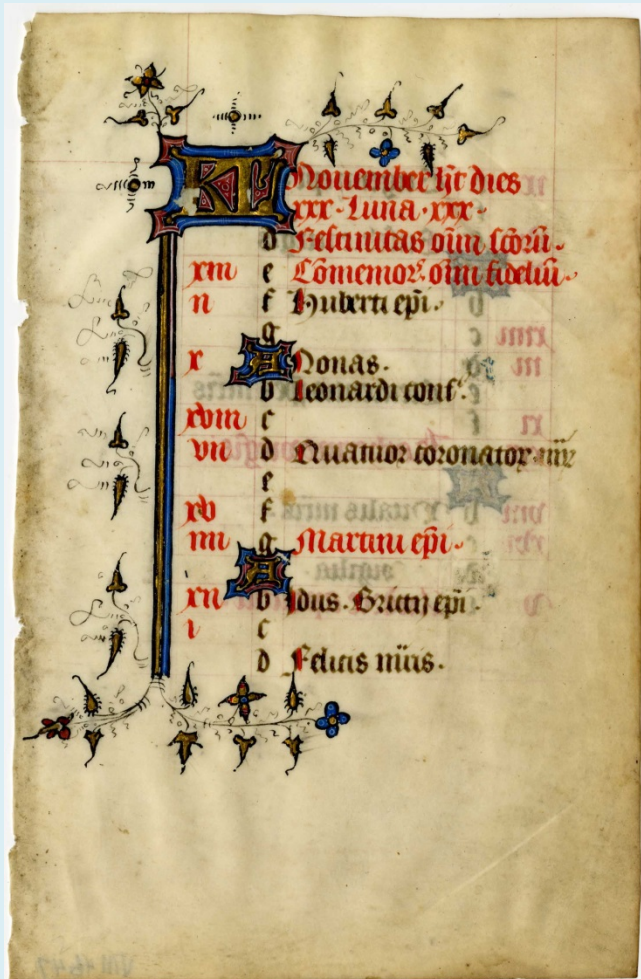 KL November hȳt dies
xxx · Luna · xxx ·
d Festinitas oīm scōrū ·
xiii e Cōmemor. oīm fideliū ·
ii f Huberti epī ·
g
x A Nonas ·
b Leonardi conf.
xviii c
vii d Quatuor coronator iiii
e
xv f
iiii g Martini epī ·
A
xii b Idus · Brictij epī ·
i c
d Felicis mris ·